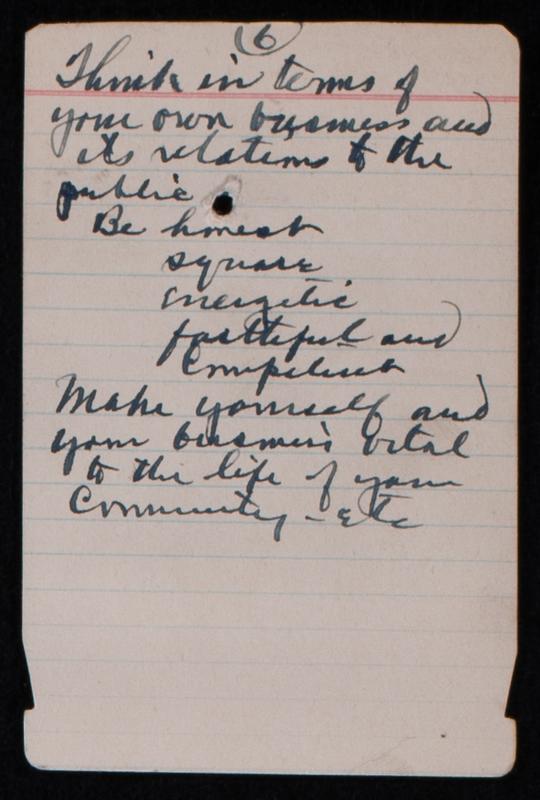 6
Think in terms of
your own business and
its relations to the
public
Be honest
square
energetic
faithful and
competent
Make yourself and
your business vital
to the life of your
Community - etc